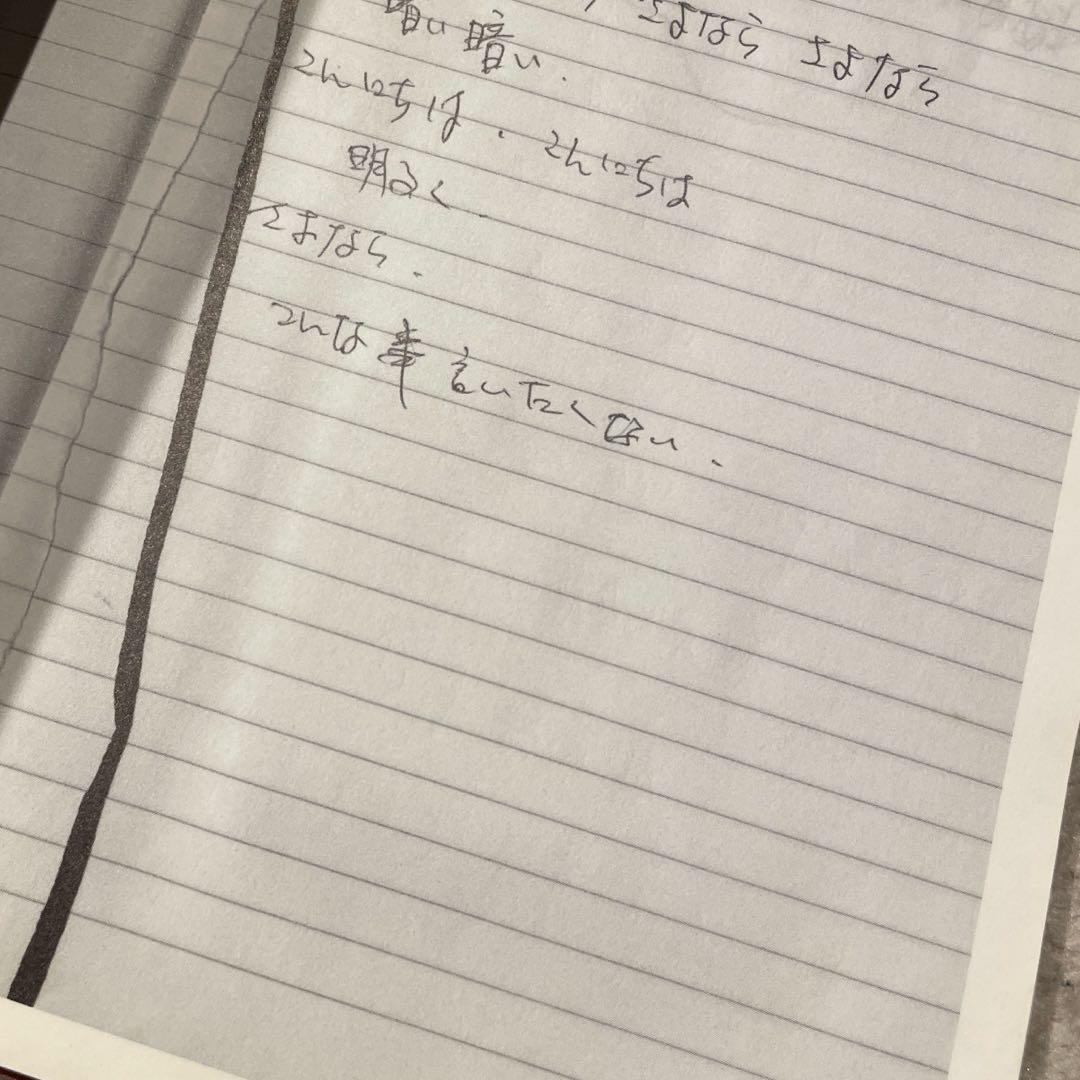 さよなら さよなら
暗い暗い.
こんにちは. こんにちは
明るく.
さよなら.
こんな事言いたくない.